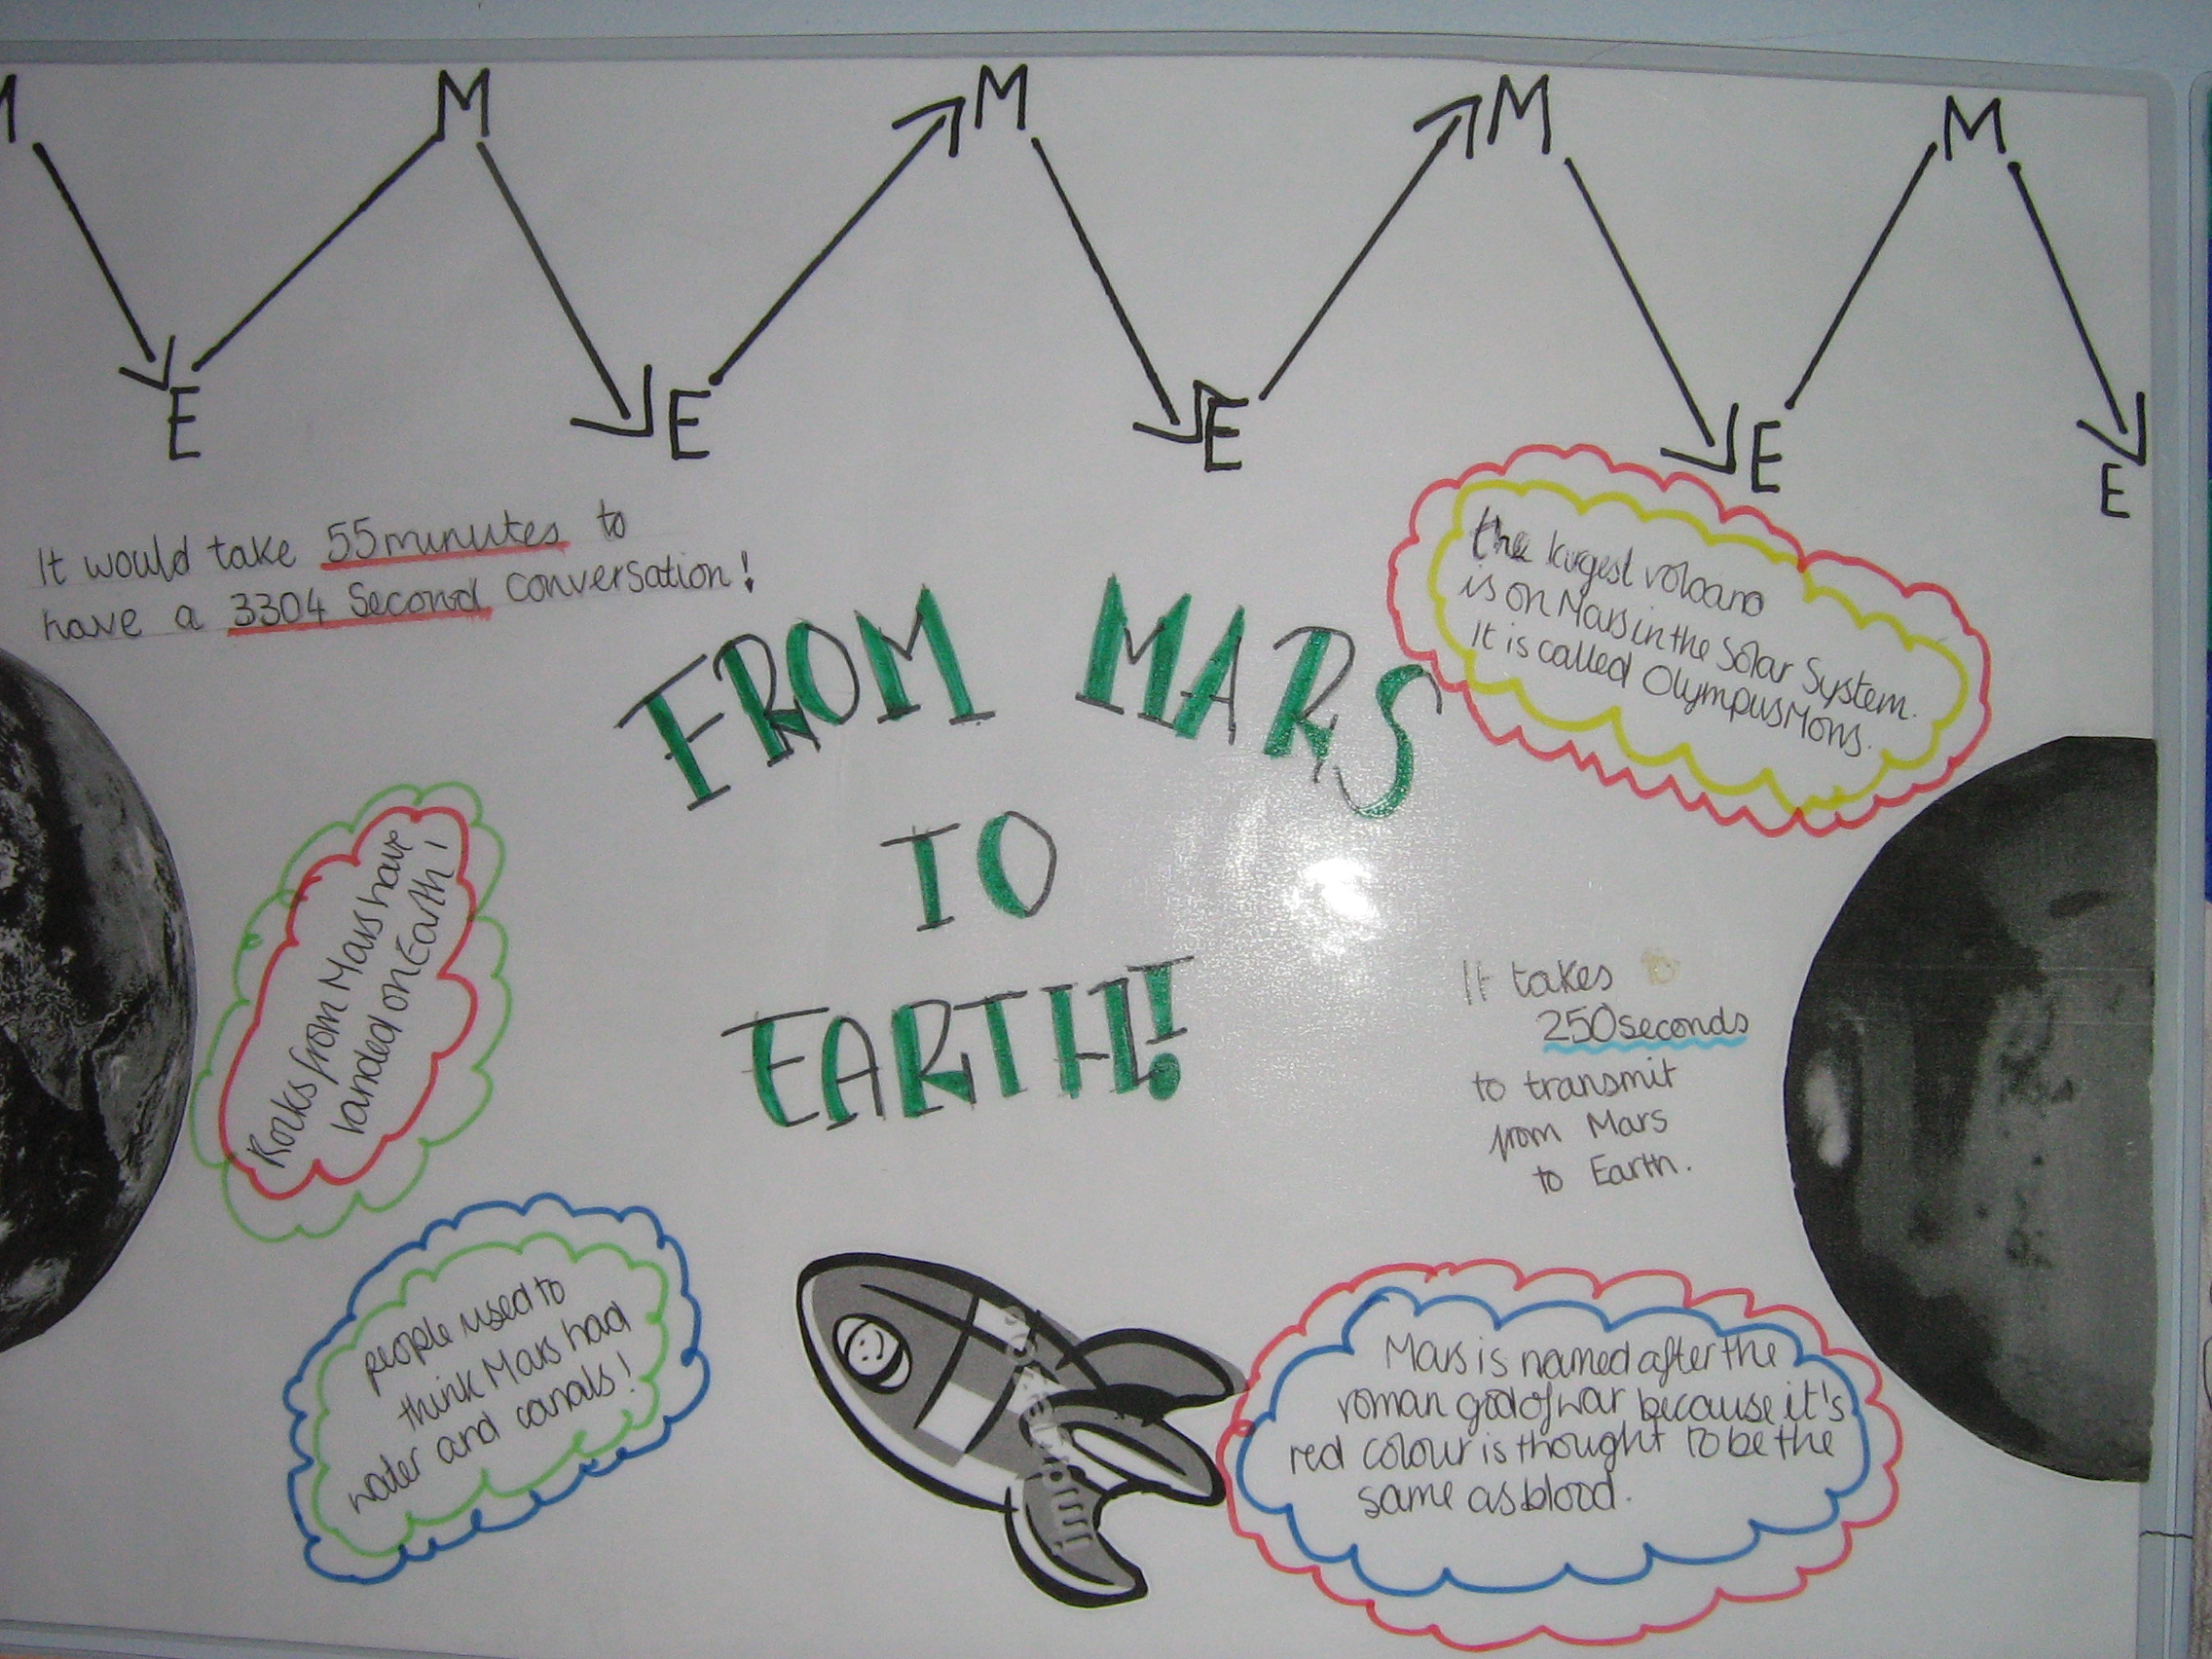 M M M M M
E E E E E
It would take 55minutes to
have a 3304 Second conversation!
the largest volcano
is on Mars in the Solar System.
It is called Olympus Mons.
FROM MARS
TO
EARTH!
Rocks from Mars have
landed on Earth!
It takes
250seconds
to transmit
from Mars
to Earth.
people used to
think Mars had
water and canals!
Mars is named after the
roman god of war because it's
red colour is thought to be the
same as blood.